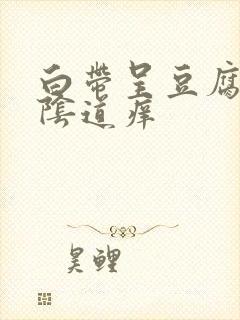 白带呈豆腐
阴道痒
昊鲤